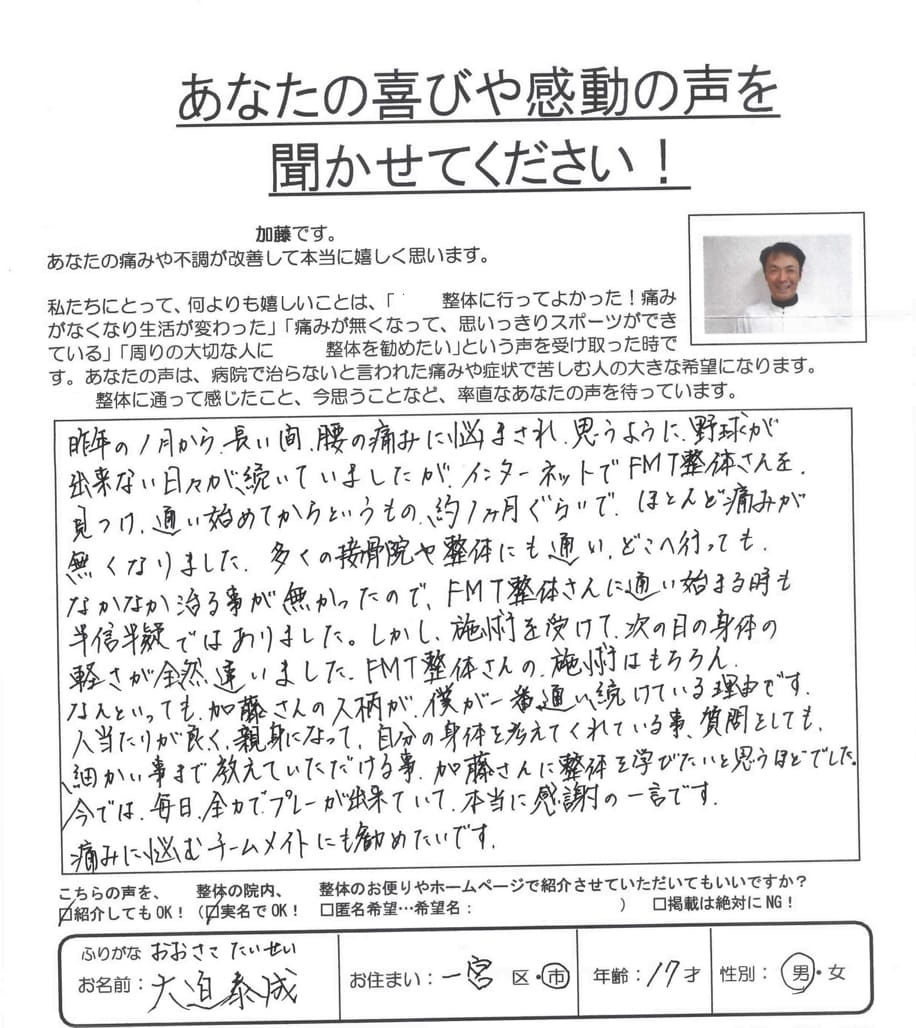 あなたの喜びや感動の声を
聞かせてください！
加藤です。
あなたの痛みや不調が改善して本当に嬉しく思います。
私たちにとって、何よりも嬉しいことは、「　　整体に行ってよかった！痛み
がなくなり生活が変わった」「痛みが無くなって、思いっきりスポーツができ
ている」「周りの大切な人に　　整体を勧めたい」という声を受け取った時で
す。あなたの声は、病院で治らないと言われた痛みや症状で苦しむ人の大きな希望になります。
整体に通って感じたこと、今思うことなど、率直なあなたの声を待っています。
昨年の1月から、長い間、腰の痛みに悩まされ、思うように、野球が
出来ない日々が続いていましたが、インターネットでFMT整体さんを、
見つけ、通い始めてからというもの、約1ヶ月ぐらいで、ほとんど痛みが
無くなりました。多くの接骨院や整体にも通い、どこへ行っても、
なかなか治る事が無かったので、FMT整体さんに通い始まる時も
半信半疑ではありました。しかし、施術を受けて、次の日の身体の
軽さが全然違いました。FMT整体さんの、施術はもちろん、
なんといっても、加藤さんの人柄が、僕が一番通い続けている理由です。
人当たりが良く、親身になって、自分の身体を考えてくれている事、質問としても、
細かい事まで教えていただける事、加藤さんに整体を学びたいと思うほどでした。
今では、毎日、全力でプレーが出来ていて、本当に感謝の一言です。
痛みに悩むチームメイトにも勧めたいです。
こちらの声を、　整体の院内、　整体のお便りやホームページで紹介させていただいてもいいですか？
☑紹介してもOK！（☑実名でOK！　□匿名希望…希望名：　　　　　）　□掲載は絶対にNG！
ふりがな　おおさこ たいせい
お名前：大迫泰成　お住まい：一宮　区・市　年齢：17才　性別：男・女